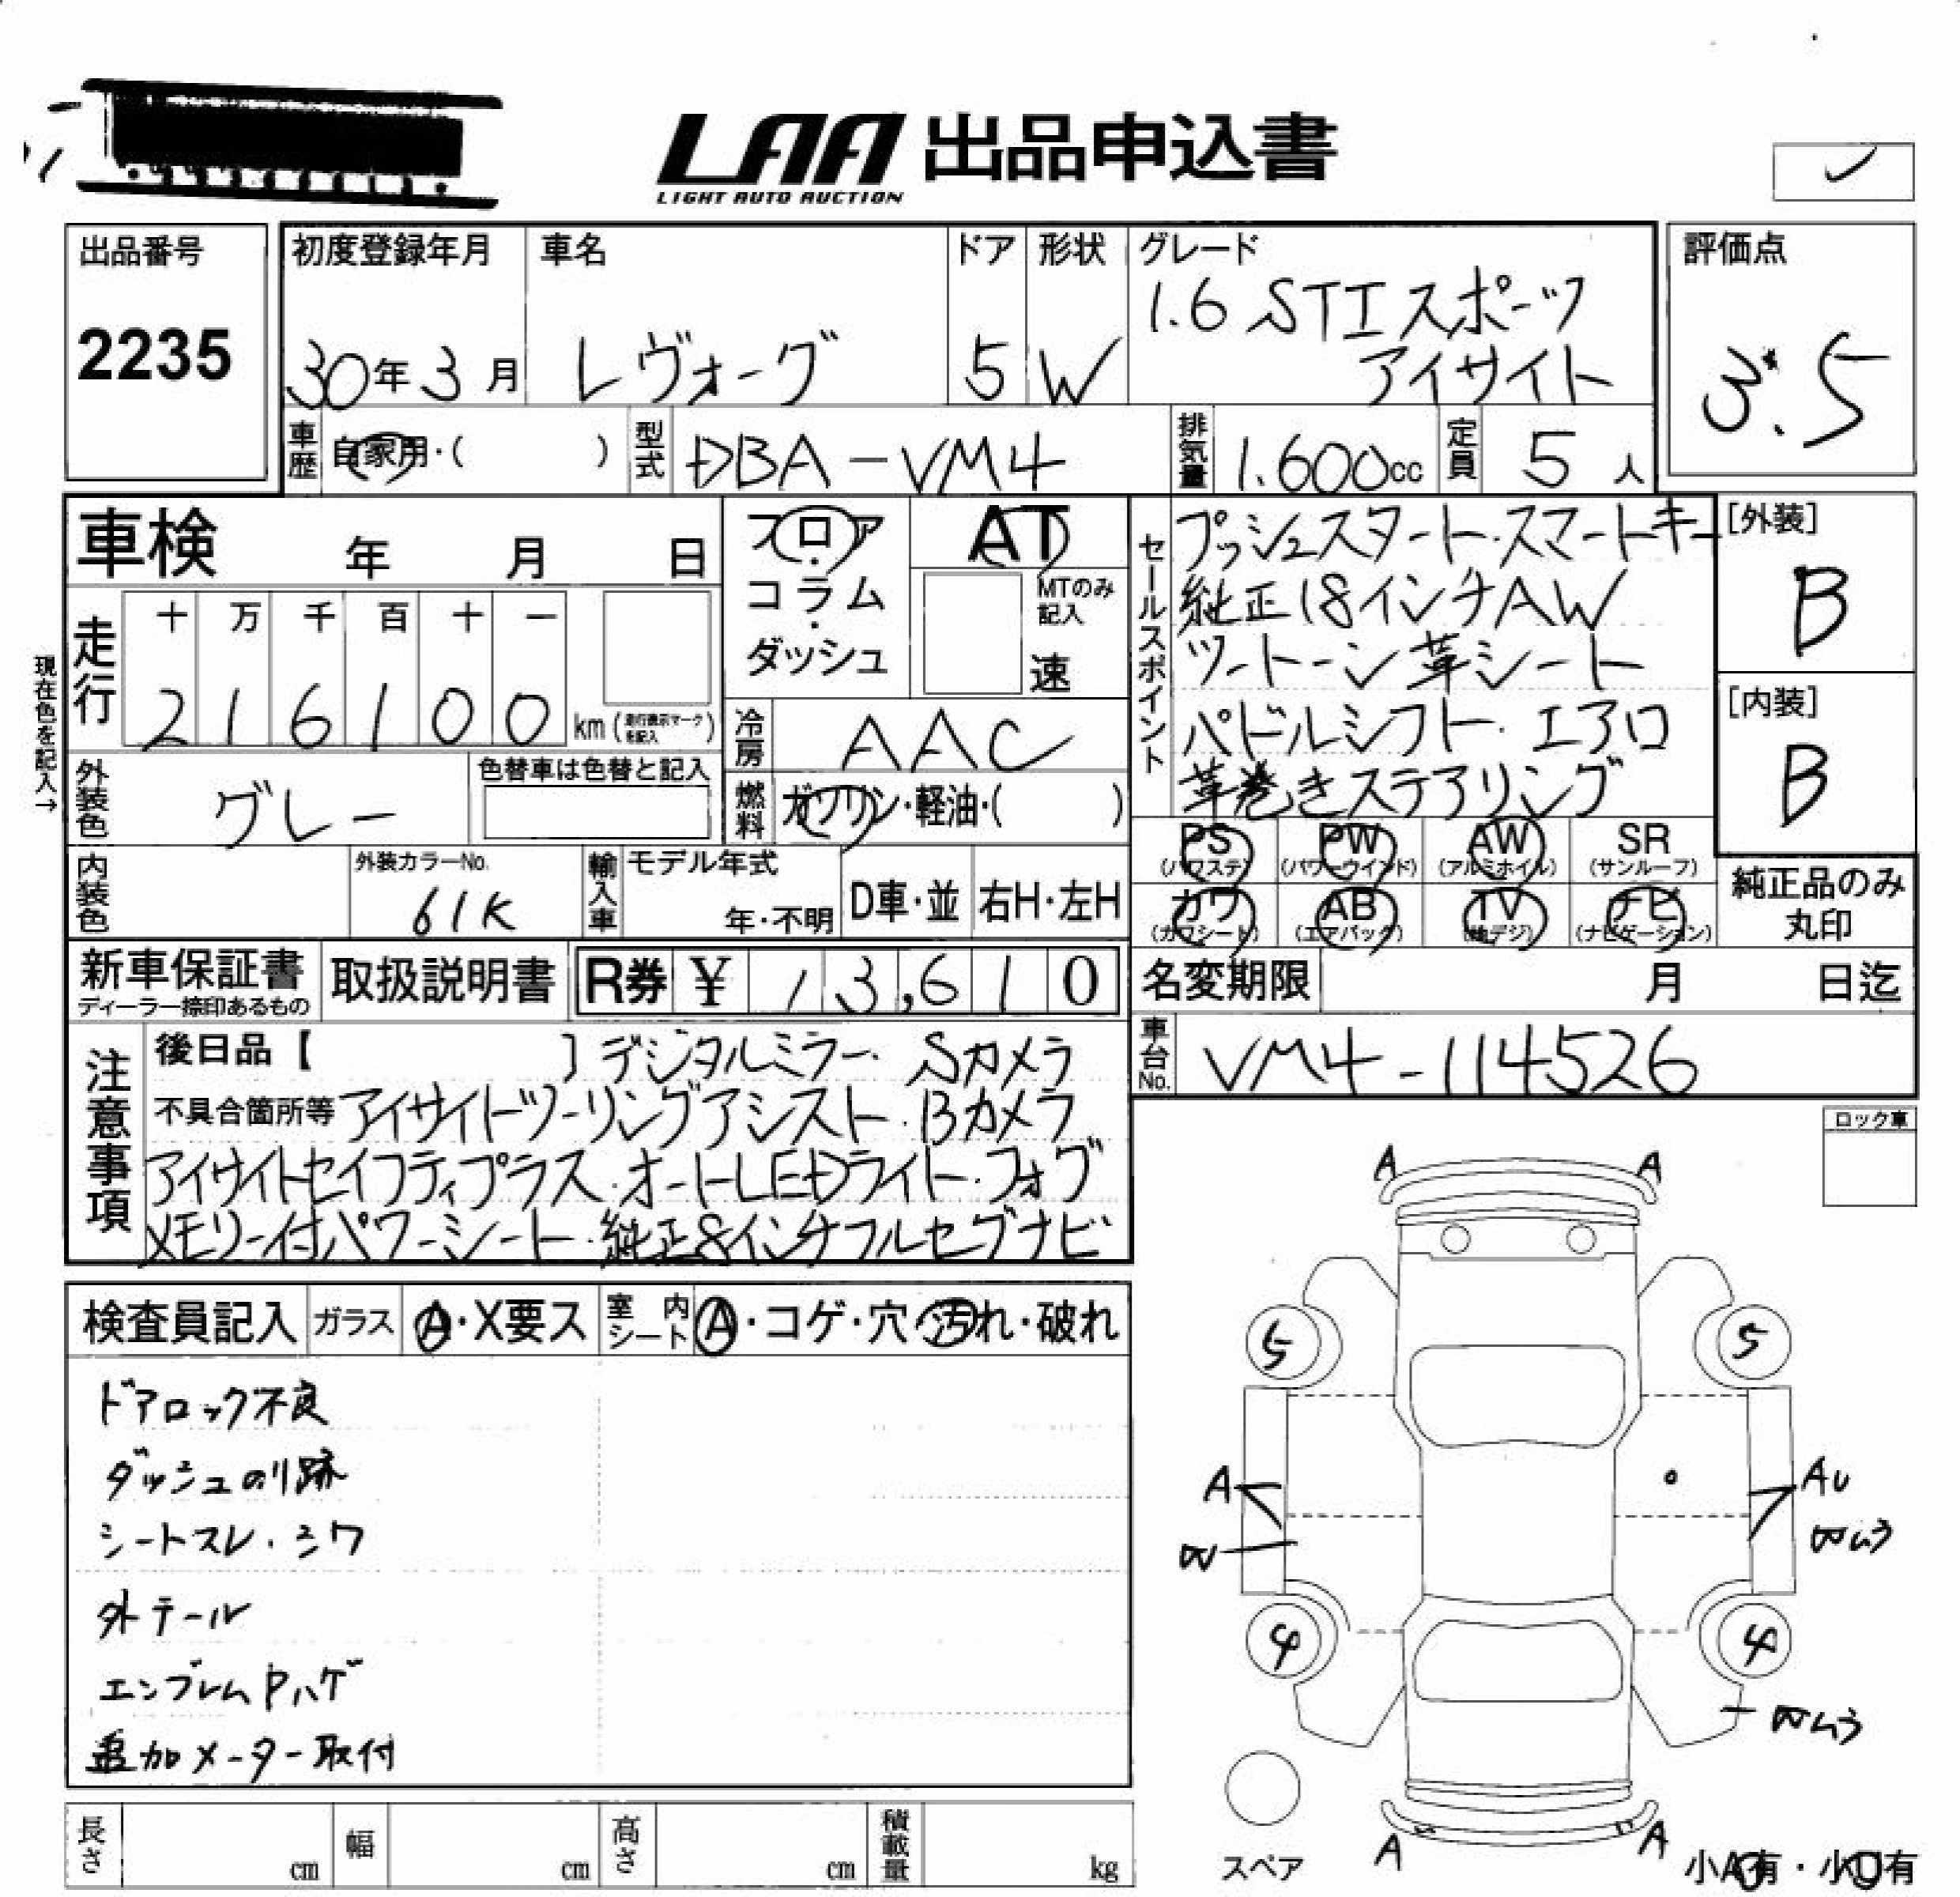 LAA 出品申込書
LIGHT AUTO AUCTION
出品番号
2235
初度登録年月
30年3月
車名
レヴォーグ
ドア
5
形状
W
グレード
1.6 STIスポーツ
アイサイト
評価点
3.5
車歴
自家用・( )
型式
DBA-VM4
排気量
1.600cc
定員
5人
車検 年 月 日
フロア
・
コラム
・
ダッシュ
AT
MTのみ
記入
速
セールスポイント
プッシュスタート・スマートキー
純正18インチAW
ツートーン革シート
パドルシフト・エアロ
革巻きステアリング
[外装]
B
[内装]
B
現在色を記入→
走行
十 万 千 百 十 一
216100 km (走行表示マークを記入)
冷房
AAC
外装色
グレー
色替車は色替と記入
燃料
ガソリン・軽油・( )
内装色
外装カラーNo.
61K
輸入車
モデル年式
年・不明
D車・並
右H・左H
PS (パワステ)
PW (パワーウインド)
AW (アルミホイル)
SR (サンルーフ)
カワ (カワシート)
AB (エアバック)
TV (地デジ)
ナビ (ナビゲーション)
純正品のみ
丸印
新車保証書
ディーラー捺印あるもの
取扱説明書
R券 ¥ 13,610
名変期限 月 日迄
車台No.
VM4-114526
注意事項
後日品【 】デジタルミラー・Sカメラ
不具合箇所等 アイサイトツーリングアシスト・Bカメラ
アイサイトセイフティプラス・オートLEDライト・フォグ
メモリー付パワーシート・純正8インチフルセグナビ
ロック車
検査員記入
ガラス
A・X要ス
室内
シート
A・コゲ・穴・汚れ・破れ
ドアロック不良
ダッシュのり跡
シートスレ・シワ
外テール
エンブレムPハゲ
追加メーター取付
A A
5 5
A AU
W Wムラ
4 4
Wムラ
A A
スペア
小A有・小U有
長さ cm
幅 cm
高さ cm
積載量 kg